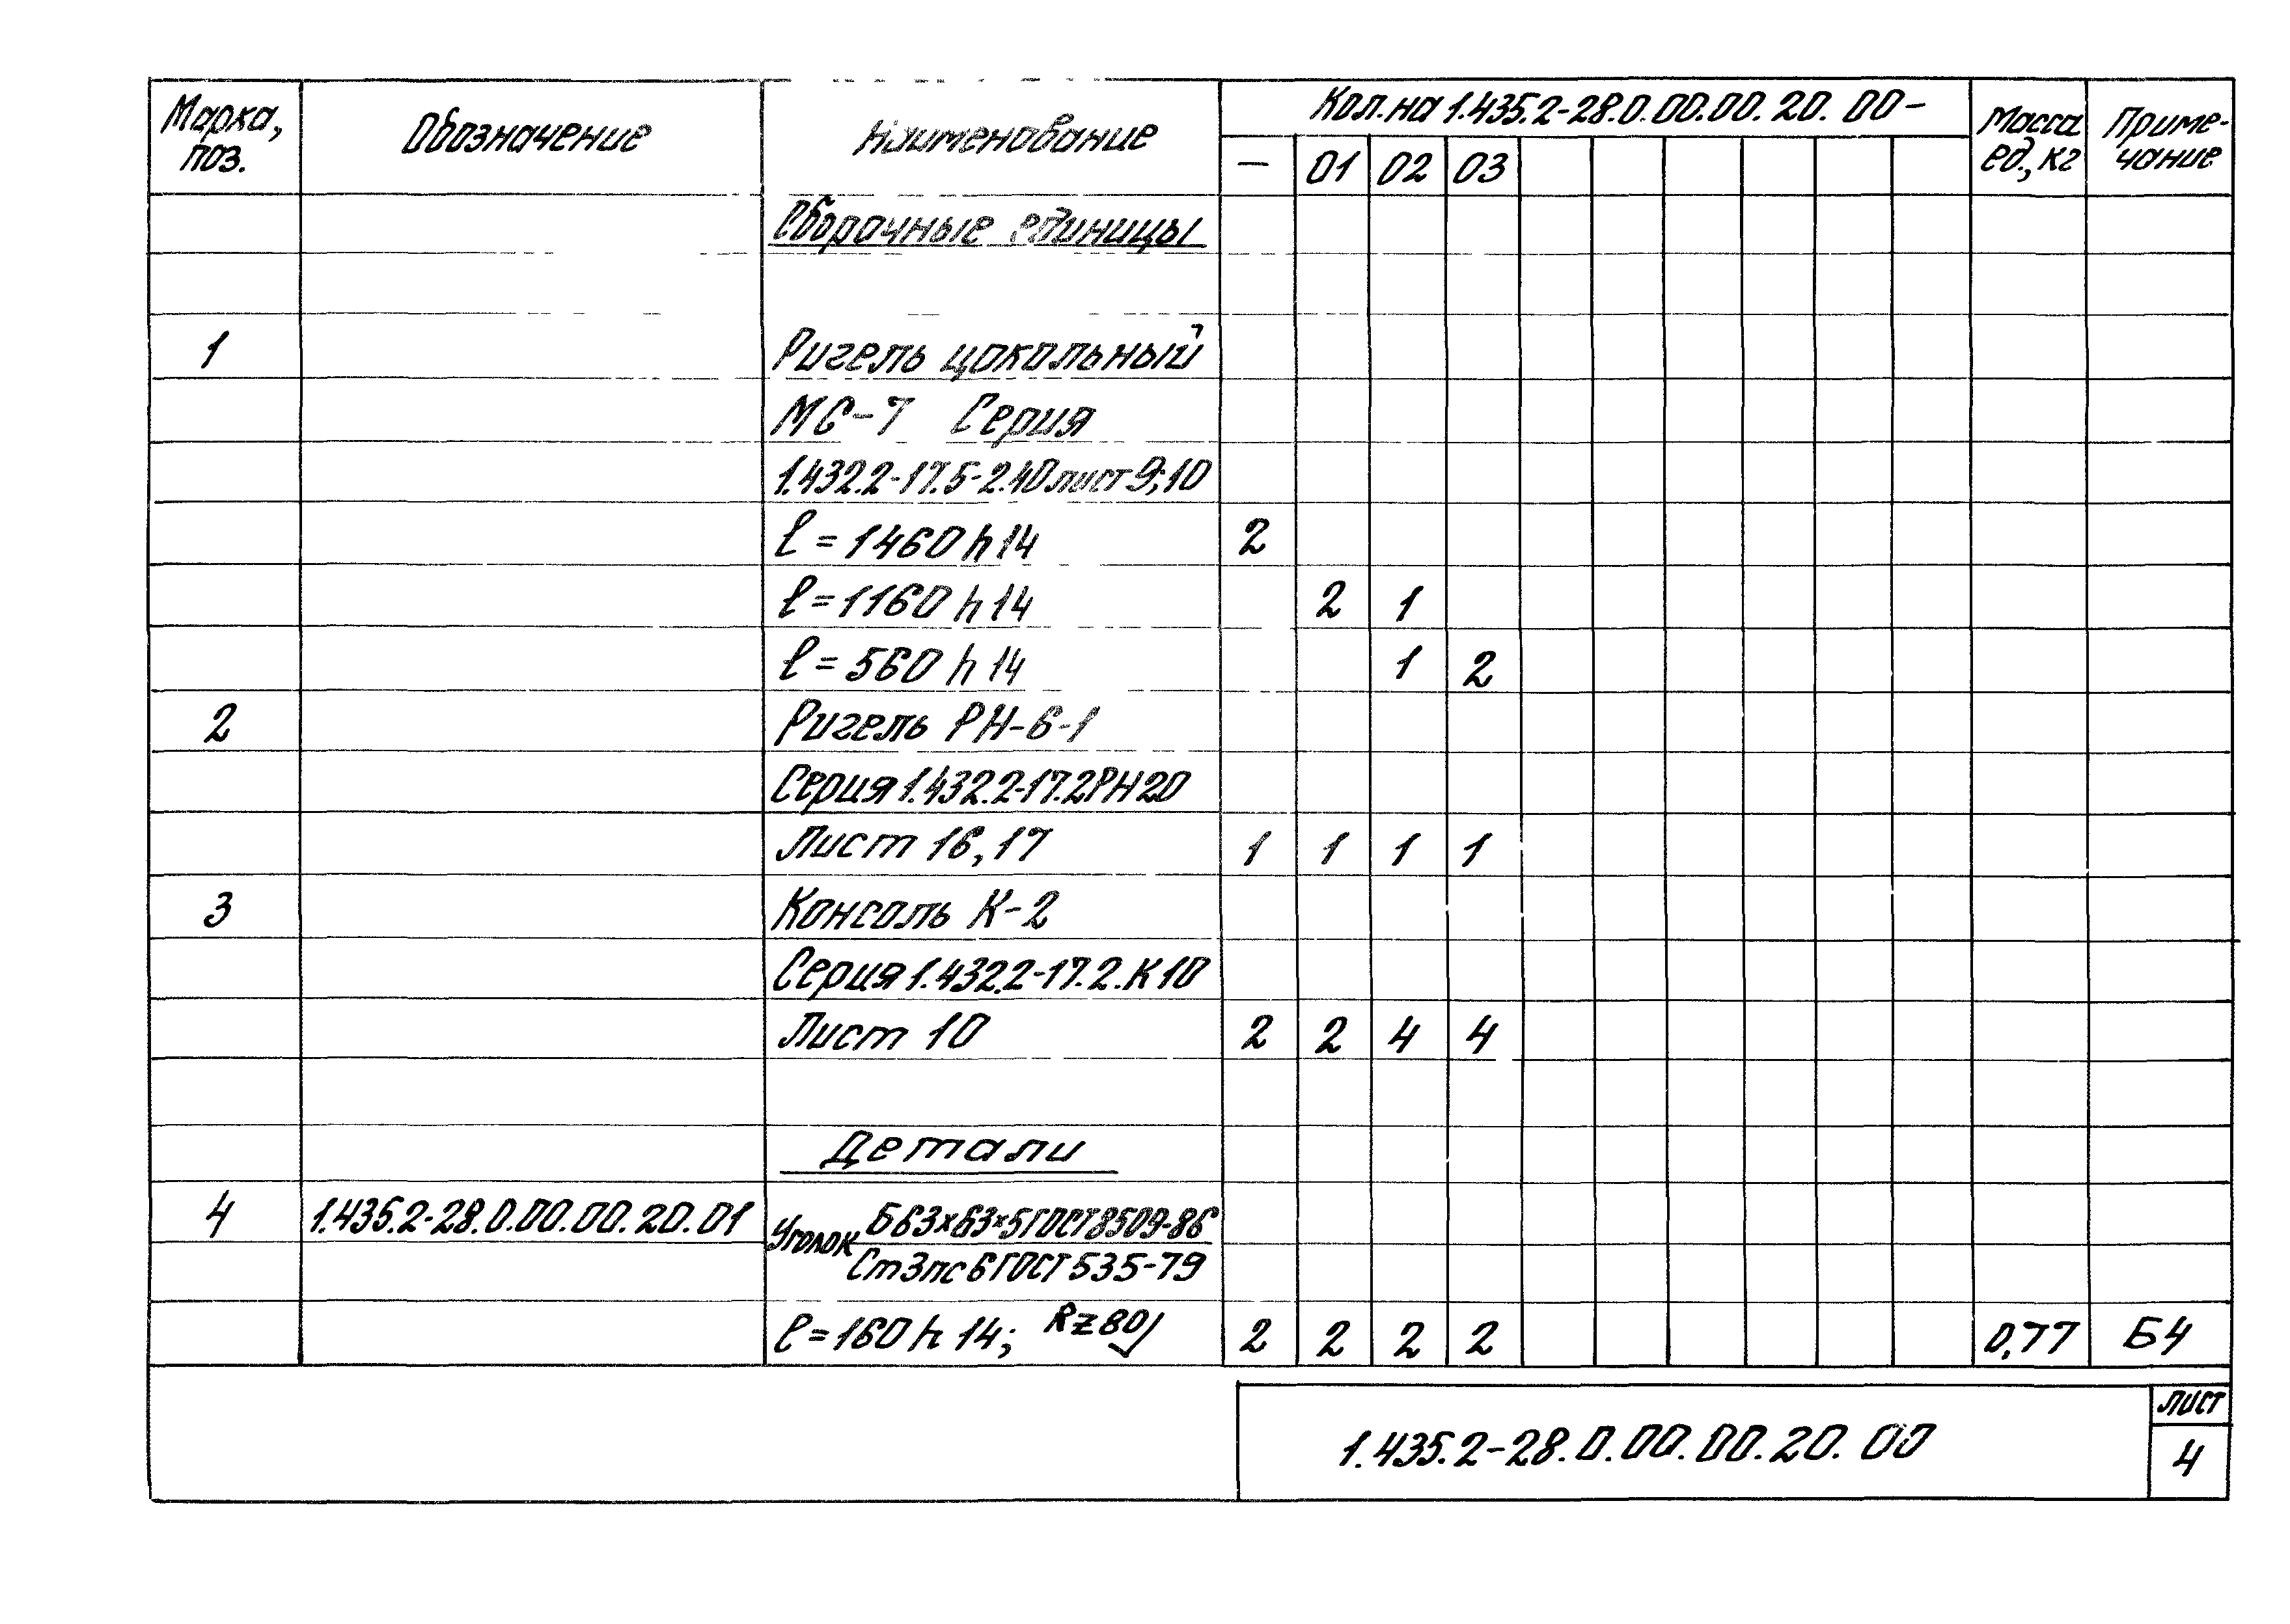 Марка, поз. Обозначение Наименование Кол. на 1.435.2-28.0.00.00.20.00- Масса ед., кг Приме-чание
— 01 02 03
Сборочные единицы
1 Ригель цокольный
МС-7 Серия
1.432.2-17.5-2.40 лист 9;10
ℓ=1460 h14 2
ℓ=1160 h14 2 1
ℓ=560 h14 1 2
2 Ригель РН-6-1
Серия 1.432.2-17.2РН20
Лист 16,17 1 1 1 1
3 Консоль К-2
Серия 1.432.2-17.2.К10
Лист 10 2 2 4 4
Детали
4 1.435.2-28.0.00.00.20.01 Уголок Б63×63×5 ГОСТ 8509-86
Ст3пс6 ГОСТ 535-79
ℓ=160 h14; Rz80 2 2 2 2 0,77 БЧ
1.435.2-28.0.00.00.20.00
Лист
4